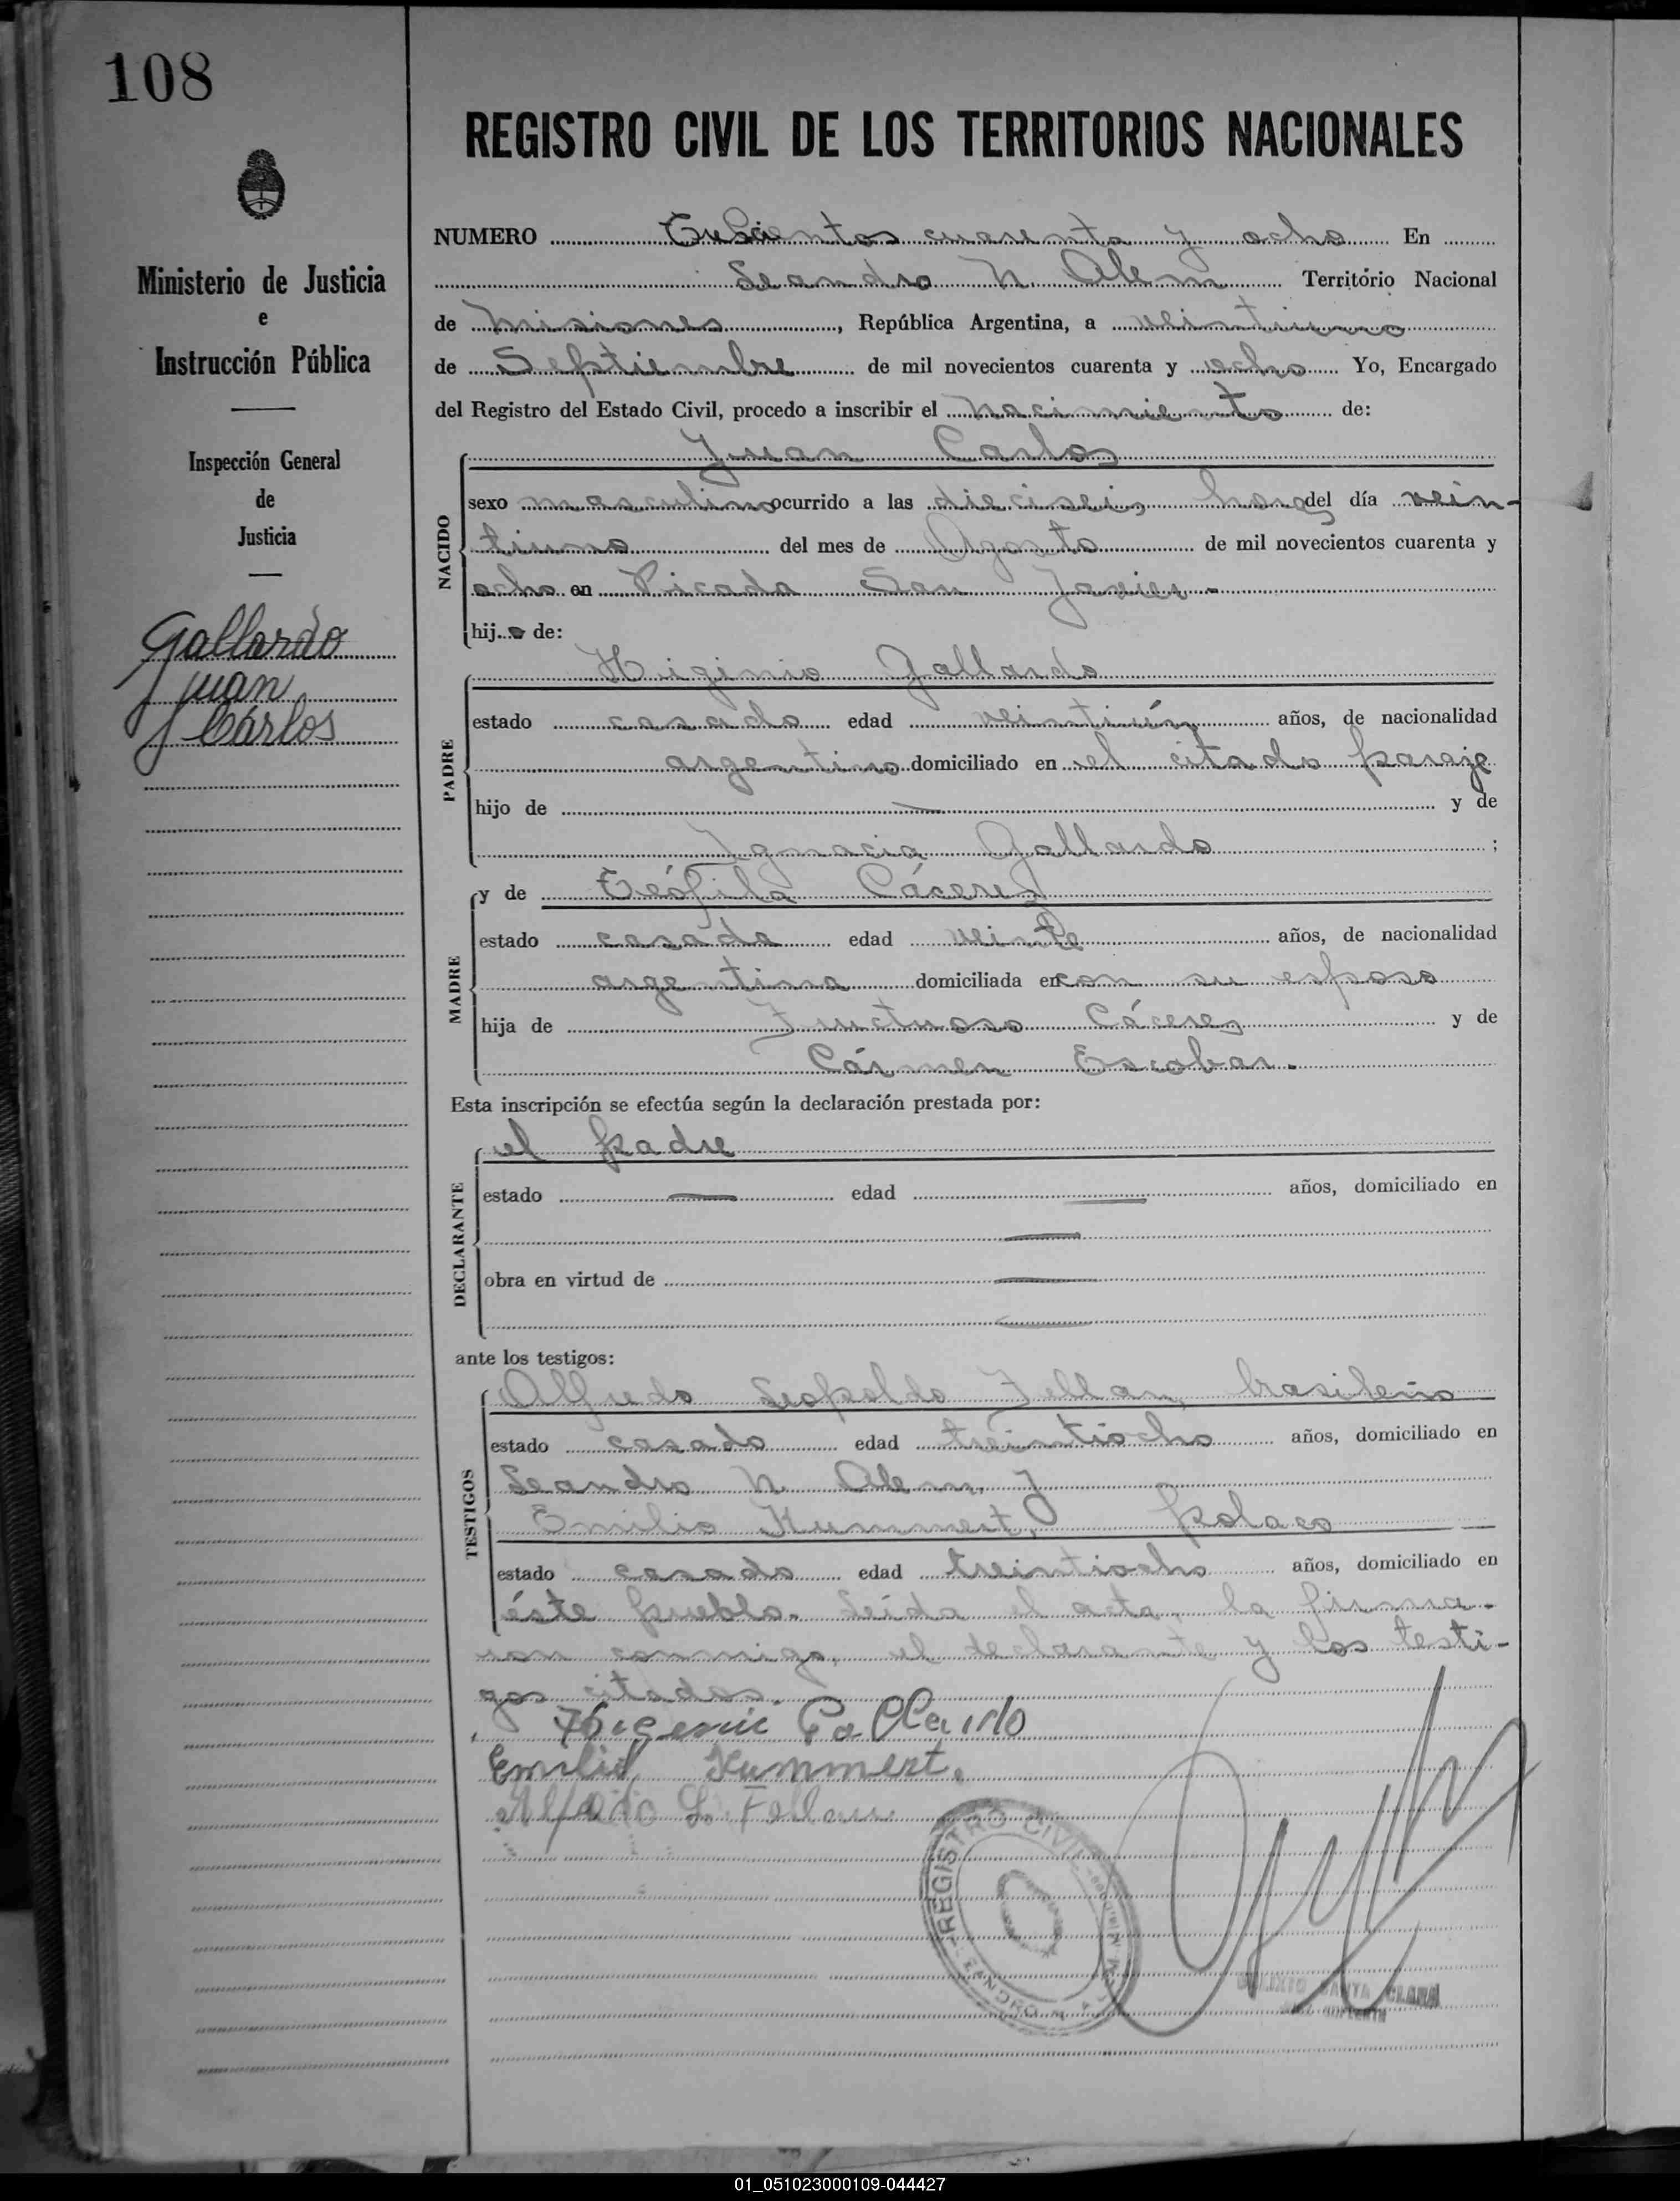 108
REGISTRO CIVIL DE LOS TERRITORIOS NACIONALES
Ministerio de Justicia
e
Instrucción Pública
Inspección General
de
Justicia
Gallardo
Juan
Cárlos
NUMERO Trescientos cuarenta y ocho En
Leandro N. Alem Território Nacional
de Misiones, República Argentina, a veintiuno
de Septiembre de mil novecientos cuarenta y ocho Yo, Encargado
del Registro del Estado Civil, procedo a inscribir el nacimiento de:
NACIDO
Juan Carlos
sexo masculino ocurrido a las dieciseis horas del día vein-
tiuno del mes de Agosto de mil novecientos cuarenta y
ocho en Picada San Javier.-
hijo de:
PADRE
Higinio Gallardo
estado casado edad veintiún años, de nacionalidad
argentino domiciliado en el citado paraje
hijo de — y de
Ignacia Gallardo ;
MADRE
y de Teófila Cáceres
estado casada edad veinte años, de nacionalidad
argentina domiciliada en con su esposo
hija de Fructuoso Cáceres y de
Cármen Escobar.
Esta inscripción se efectúa según la declaración prestada por:
DECLARANTE
el padre
estado — edad — años, domiciliado en
—
obra en virtud de —
—
ante los testigos:
TESTIGOS
Alfredo Leopoldo Fellan, brasileño
estado casado edad treintiocho años, domiciliado en
Leandro N. Alem, y
Emilio Kummert, polaco
estado casado edad treintiocho años, domiciliado en
éste pueblo. Leída el acta, la firma-
ron conmigo, el declarante y los testi-
gos citados.
Gallardo
Emilio Kummert.
Alfredo L. Fellan
REGISTRO CIVIL
LEANDRO N. ALEM
SANTA CLARA
01_051023000109-044427